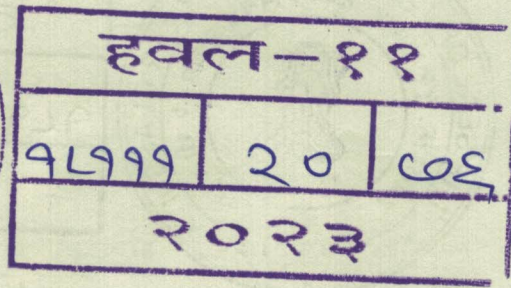 हवल-११
१८१११ २० ७६
२०२३